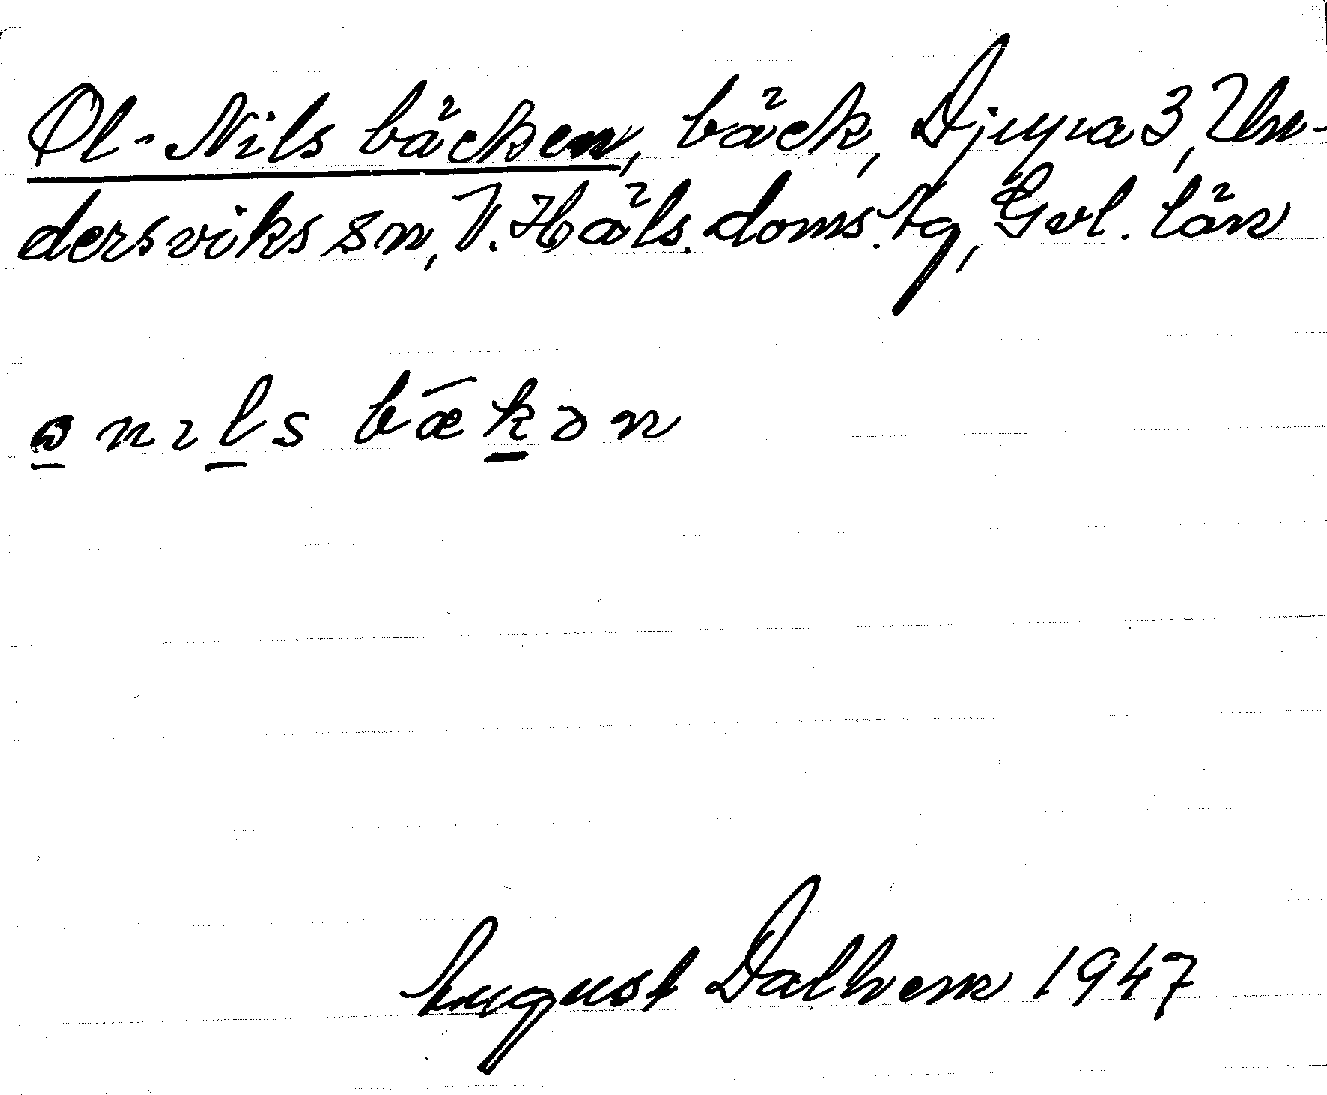 Ol-Nils bäcken, bäck, Djupa 3, Un-
dersviks sn, V. Häls. doms. tg, Gvl. län
n ɪ l s bækən
August Dalhem 1947